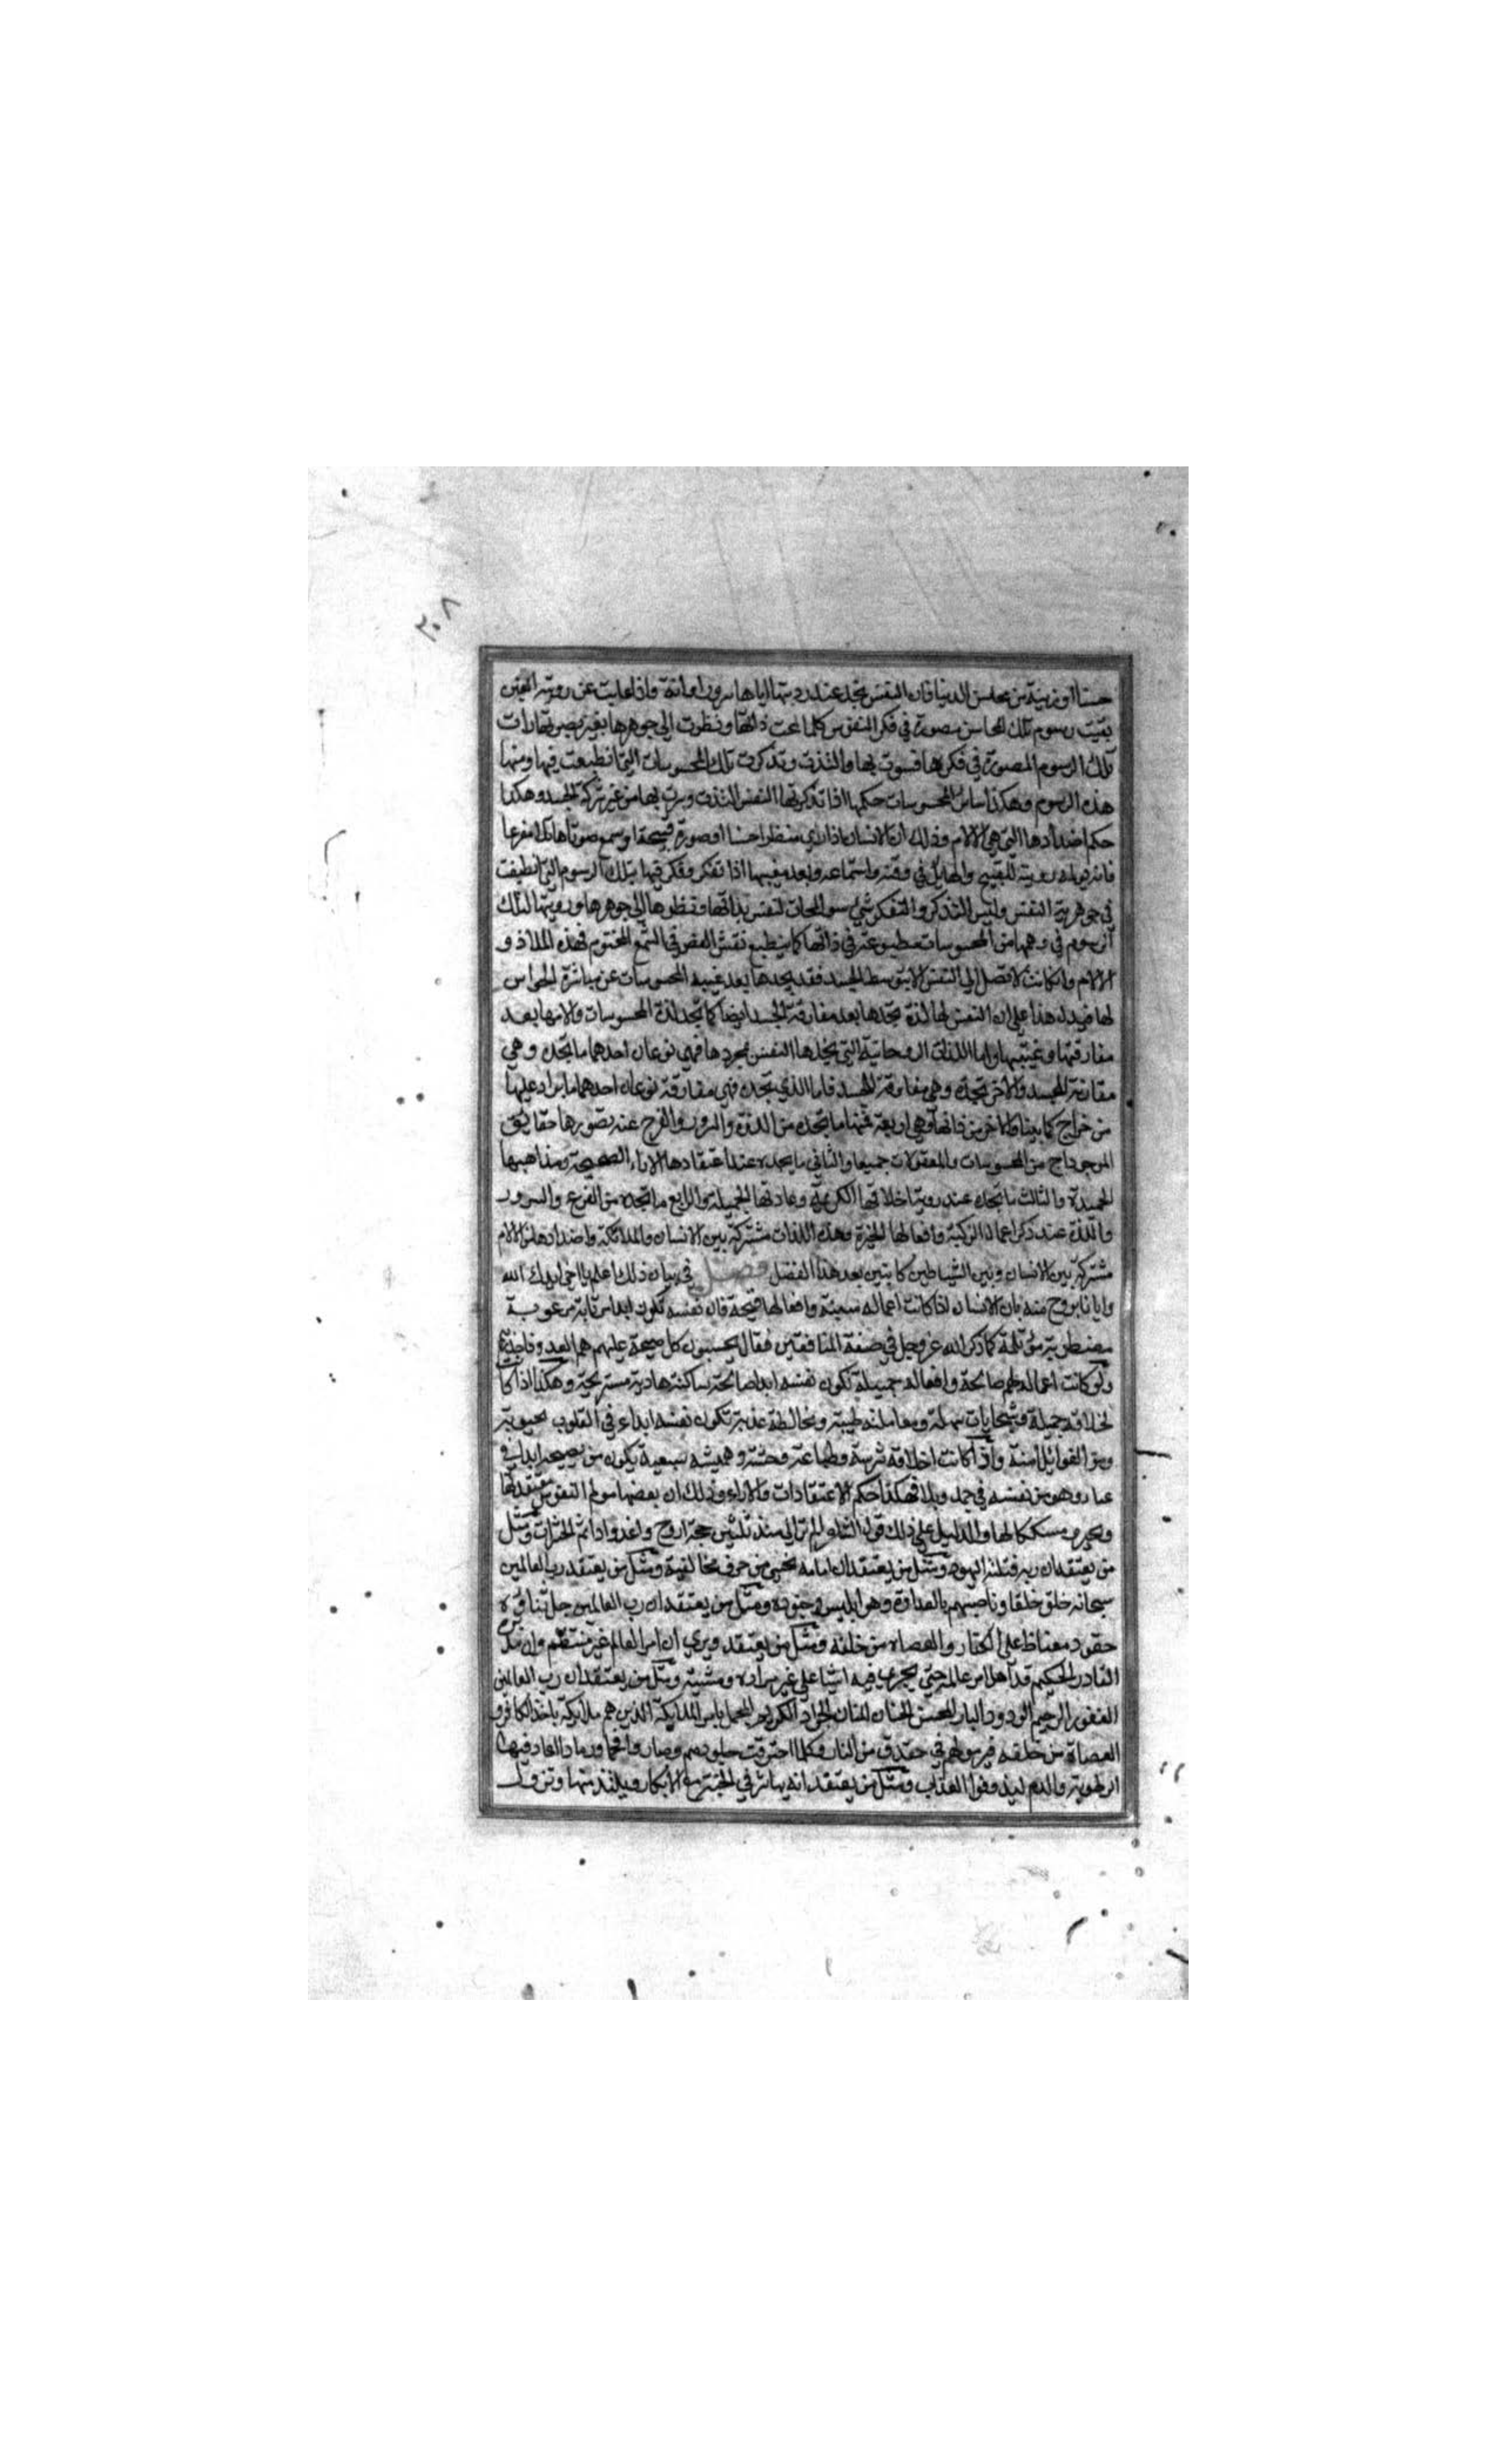 ٢٠٨
حسنا او زينة من محاسن الدنيا فان النفس تجد عند رويتها اياها سرورا ولذة واذا غابت عن روية العين
بقيت رسوم تلك المحاسن مصورة في فكر النفوس كلما لمحت ذاتها ونظرت الي جوهرها رات
تلك الرسوم المصورة في فكرها فسرت بها والتذت وتذكرت تلك المحسوسات التي انطبعت فيها ومنها
هذه الرسوم وهكذا سائر المحسوسات حكمها اذا تذكرتها النفس التذت وسرت بها من غير شركة الجسد وهكذا
حكم اضدادها التي هي الالام وذلك ان الانسان اذا راي منظرا حسنا او صورة قبيحة او سمع صوتا هائلا مفزعا
رويته للقبيح والهايل في وقته واستماعه وبعد مغيبها اذا تفكر وفكر فيها بتلك الرسوم التي انطبعت
في جوهرية النفس وليس التذكر والتفكر شئ سوا لمحات النفس بذاتها ونظرها الي جوهرها ورويتها لتلك
الرسوم في وهمها من المحسوسات منطبوعة في ذاتها كما ينطبع نقش الفص في الشمع المختوم فهذه الملاذ و
الالام وان كانت لا تصل الي النفس الا بتوسط الجسد فقد يجدها بعد غيبة المحسوسات عن مباشرة الحواس
لها فيدل هذا علي ان النفس لها لذة تجدها بعد مفارقة الجسد ايضا كما تجد لذة المحسوسات والامها بعد
مفارقتها وغيبتها واما اللذات الروحانية التي تجدها النفس بمجردها فهي نوعان احدهما ما تجده وهي
مقارنة للجسد والاخر تجده وهي مفارقة للجسد فاما الذي تجده فهي مقارنة نوعان احدهما ما يرد عليها
من خارج كما بينا والاخر من ذاتها وهي اربعة فمنها ما تجده من اللذة والسرور والفرح عند تصورها حقايق
الموجودات من المحسوسات والمعقولات جميعا والثاني ما يجده عند اعتقادها الاراء الصحيحة ومذاهبها
الحميدة والثالث ما تجده عند رويتها اخلاقها الكريمة وعاداتها الجميلة والرابع ما تجده من الفرح والسرور
واللذة عند ذكر اعمالها الزكية وافعالها الخيرة وهذه اللذات مشتركة بين الانسان والملائكة واضدادها من الالام
مشتركة بين الانسان وبين الشياطين كما نبين بعد هذا الفصل فصل في بيان ذلك اعلم يا اخي ايدك الله
وايانا بروح منه بان الانسان اذا كانت اعماله سيئة وافعاله قبيحة فان نفسه تكون ابدا مرعوبة
مضطربة مؤلمة كما ذكر الله عز وجل في صفة المنافقين فقال يحسبون كل صيحة عليهم هم العدو فاحذرهم
ولو كانت اعمالهم صالحة وافعاله جميلة تكون نفسه ابدا صالحة ساكنة هادية مستريحة وهكذا اذا كانت
اخلاقه جميلة وسجاياه سهلة ومعاملته طيبة ومخالطة عذبة تكون نفسه ابدا في القلوب محبوبة
ومن الغوائل امنة واذا كانت اخلاقه شرسة وطباعه وحشة وهمته سبعية يكون من يصحبه ابدا في
عنا وهو من نفسه في جهد وبلا فهكذا حكم الاعتقادات والاراء وذلك ان بعضها مولم النفوس معتقديها
والدليل علي ذلك قول الشاعر الم ترا لي منذ ثلثين حجة اروح واغدوا دائم الحسرات ومثل
من يعتقد ان ربه قتلته اليهود ومثل من يعتقد ان امامه مختفي من خوف مخالفيه ومثل من يعتقد رب العالمين
سبحانه خلق خلقا وناصبهم بالعداوة وهو ابليس وجنوده ومثل من يعتقد ان رب العالمين جل ثناؤه
حقود مغتاظ علي الكفار والعصاة من خلقه ومثل من يعتقد ويري ان امر العالم غير منتظم وان
القادر الحكيم قد اهمل امر عالمه حتي يجري فيه اشيا علي غير مراده ومشيته ومثل من يعتقد ان رب العالمين
الغفور الرحيم الودود البار المحسن الحنان المنان الجواد الكريم يامر الملائكة الذين هم ملائكة باخذ الكافرو
العصاة من خلقه فيرمونهم في خندق من النار وكلما احترقت جلودهم وصاروا فحما ورمادا اعاد فيها
الرطوبة والدم ليذوقوا العذاب ومثل من يعتقد انه يباشر في الجنة مع الابكار ويلتذ منها وتزول